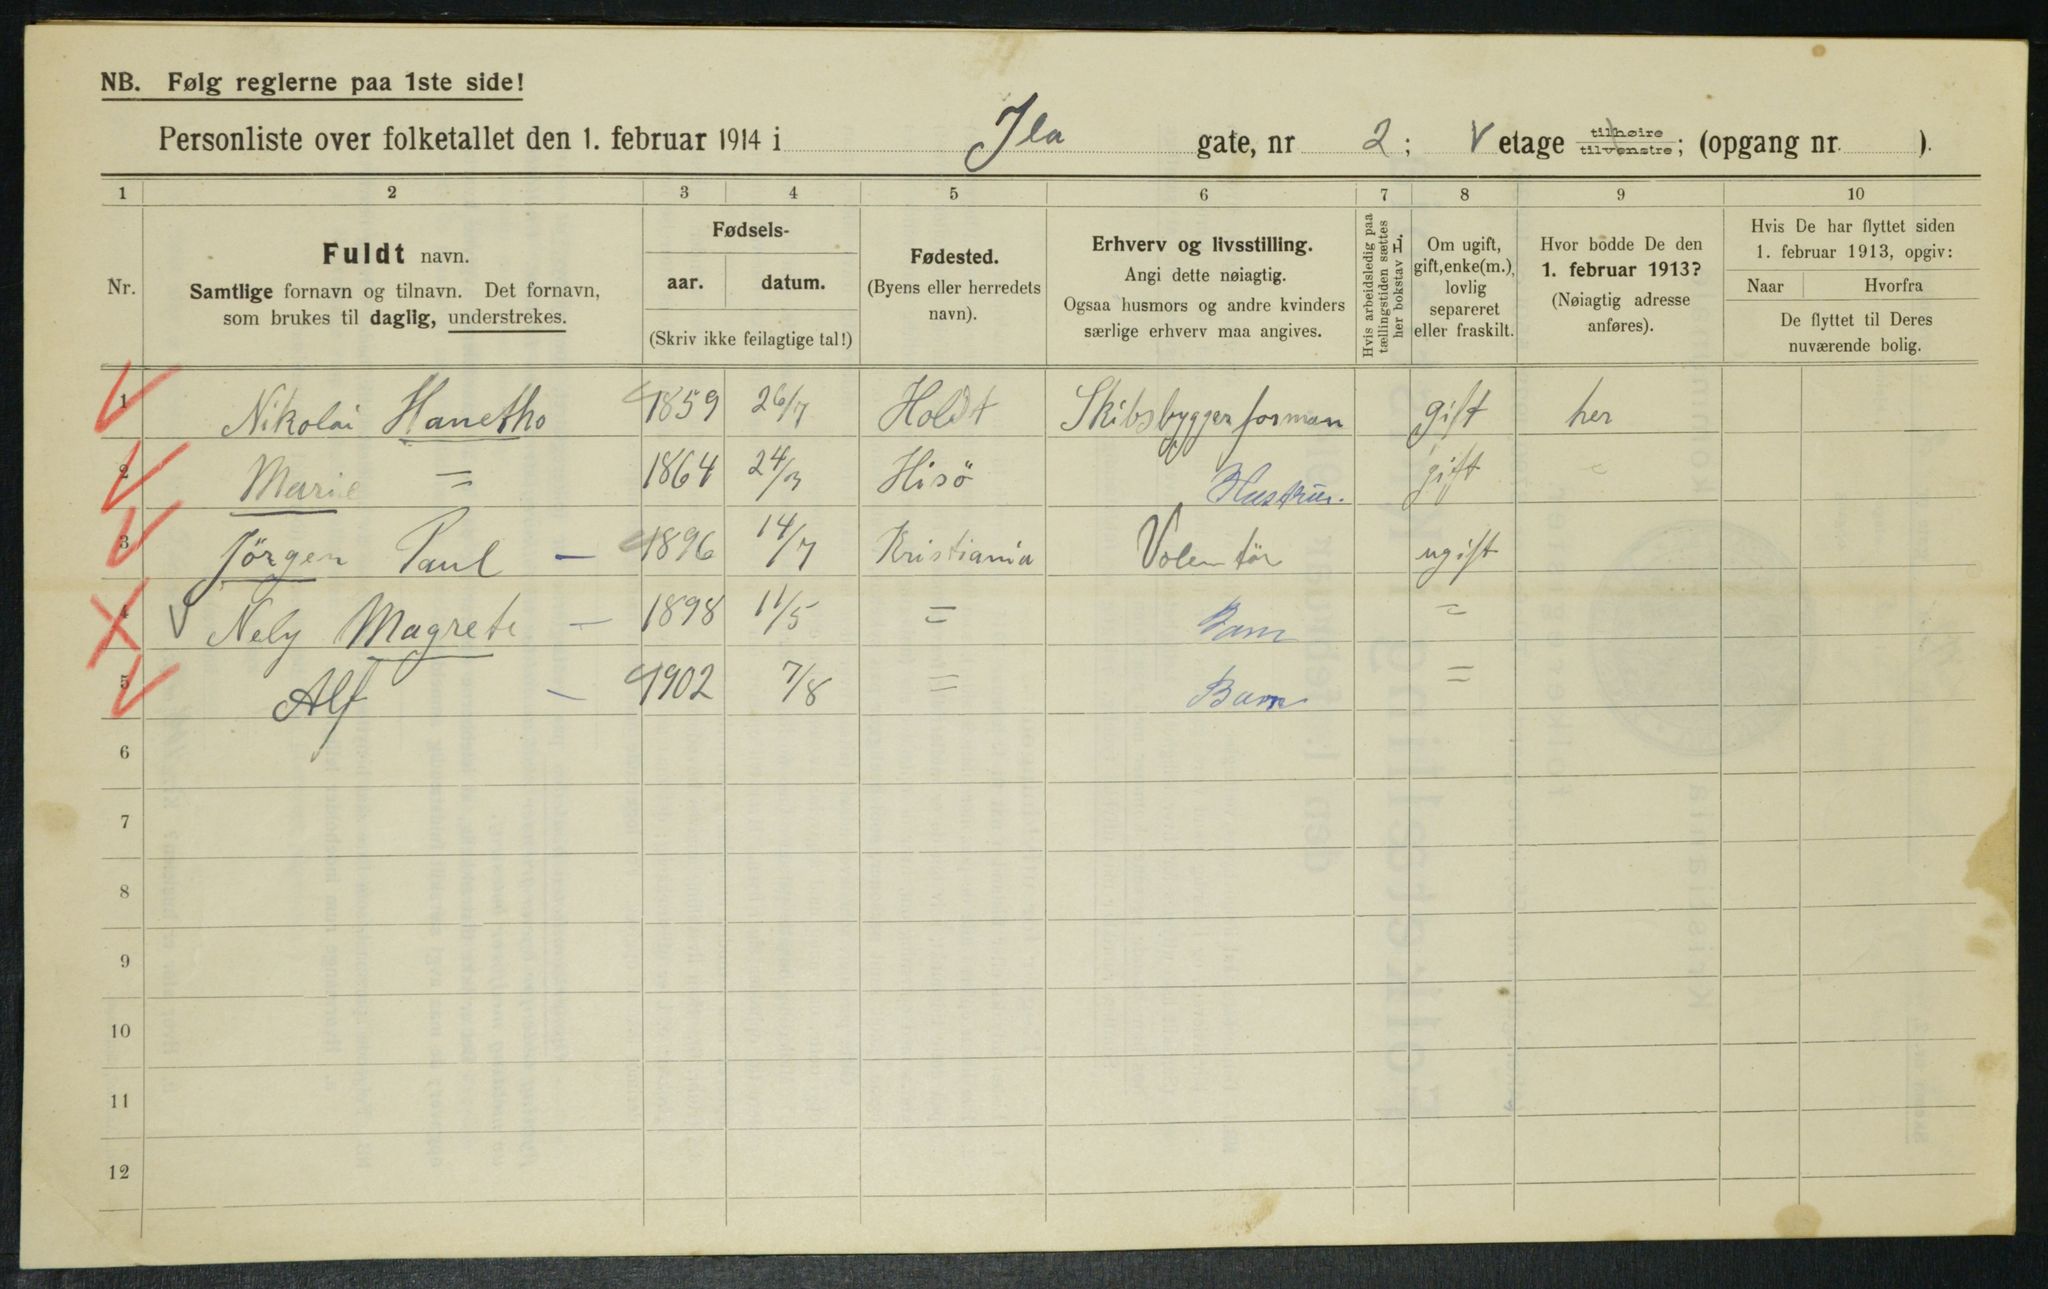 NB. Følg reglerne paa 1ste side!
Personliste over folketallet den 1. februar 1914 i Ila gate, nr 2; V etage tilhøire tilvenstre; (opgang nr. ).
1 2 3 4 5 6 7 8 9 10
Nr.
Fuldt navn.
Samtlige fornavn og tilnavn. Det fornavn,
som brukes til daglig, understrekes.
Fødsels-
aar. datum.
(Skriv ikke feilagtige tal!)
Fødested.
(Byens eller herredets
navn).
Erhverv og livsstilling.
Angi dette nøiagtig.
Ogsaa husmors og andre kvinders
særlige erhverv maa angives.
Hvis arbeidsledig paa
tællingstiden sættes
her bokstav H.
Om ugift,
gift, enke(m.),
lovlig
separeret
eller fraskilt.
Hvor bodde De den
1. februar 1913?
(Nøiagtig adresse
anføres).
Hvis De har flyttet siden
1. februar 1913, opgiv:
Naar Hvorfra
De flyttet til Deres
nuværende bolig.
1 Nikolai Hanetho 1859 26/7 Holdt Skibsbyggerforman gift her
2 Marie = 1864 24/3 Hisö Hustru. gift =
3 Jörgen Paul — 1896 14/7 Kristiania Volentör ugift
4 V Nely Magrete — 1898 11/5 = Barn =
5 Alf — 1902 7/8 = Barn =
6
7
8
9
10
11
12